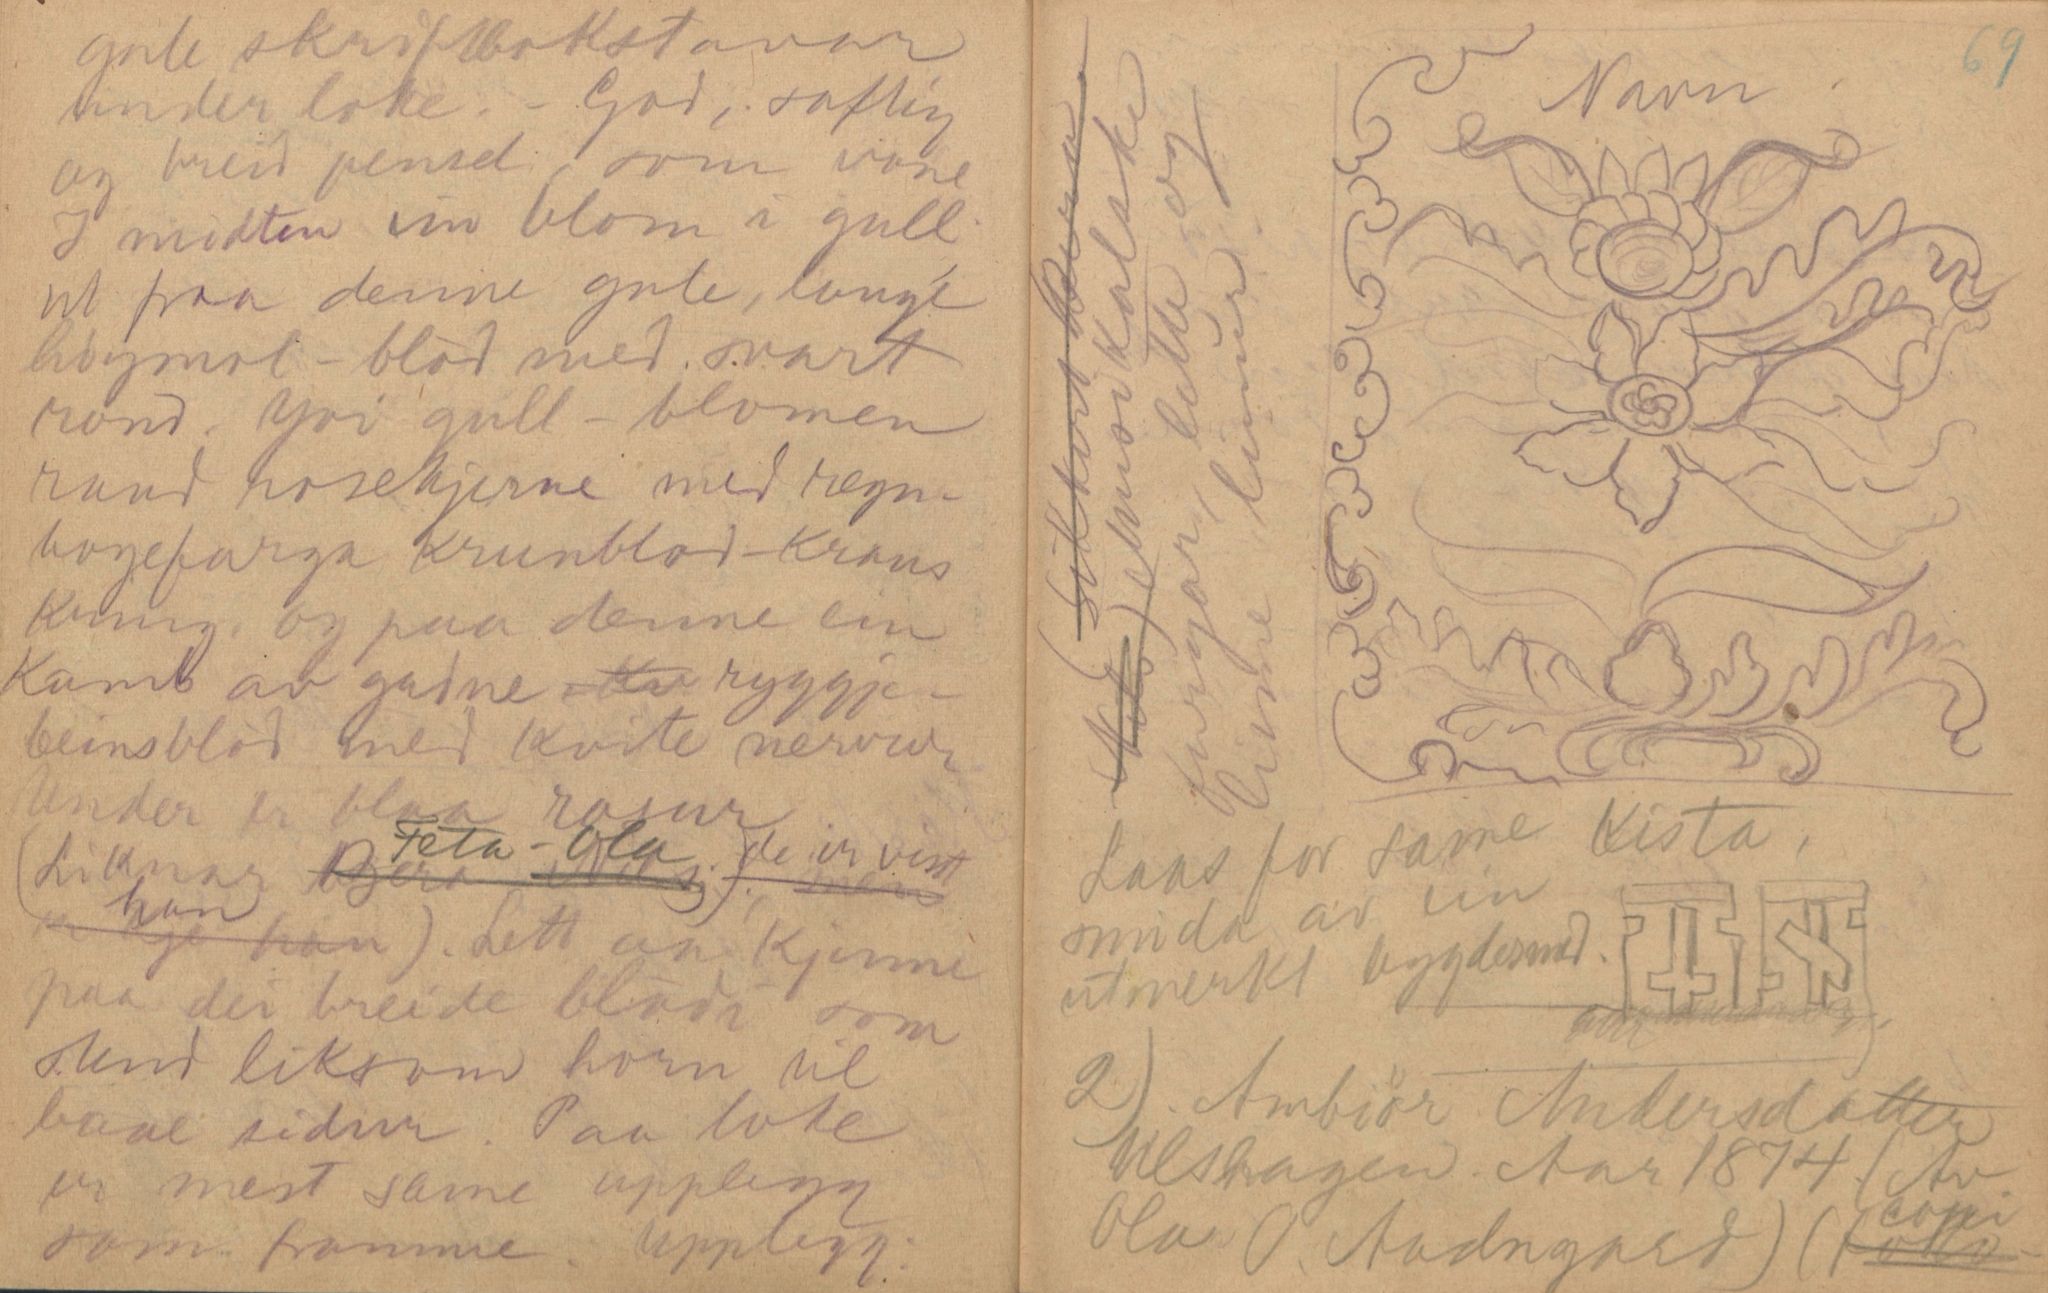 gule skriftbokstavar
under loke. - God, saftig
og breid pensel, som vone
I midten ein blom i gull
ut fraa denne gule, lange
høymol - blöd med svart
rond. Yvi gull - blomen
raud rosekjerne med regn-
bogefarga krunblod - krans
kring. og paa denne ein
kamb av gudne ryggje-
beinsblöd med kvite nervur
Under er blaa rosur
Feta - Ola
(Liknar Pgera Nils). de er visst
han
han). Lett aa kjenne
paa dei breide blödi som
stend liksom horn til
baae sidur. Paa loke
er mest same upplegg
som framme. Upplegg:
69
Navn.
elmsvikalske
fargar, lette og
linne linur.
Laas for same kista,
smida av ein
utmerkt bygdesmed.
2). Ambiör Andersdatter
Ulshagen. Aar 1874. (Av
Ola O. Aadngard) (